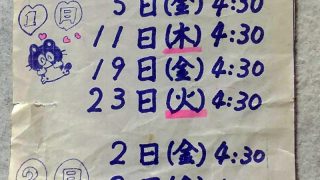 1月
5日(金)4:30
11日(木)4:30
19日(金)4:30
23日(火)4:30
2月
2日(金)4:30